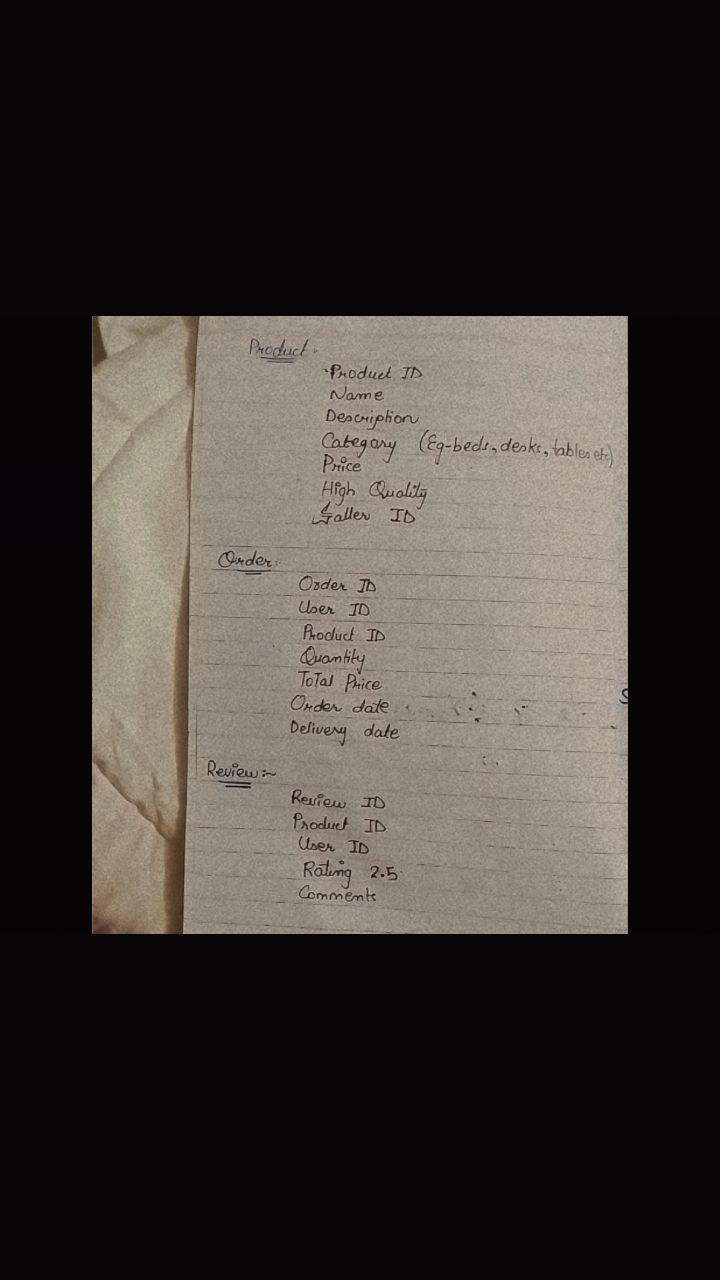 Product:
Product ID
Name
Description
Category (Eg-beds, desks, tables etc)
Price
High Quality
ID
Order:
Order ID
User ID
Product ID
Quantity
ToTal Price
Order date
Delivery date
Review:~
Review ID
Product ID
User ID
Rating 2.5
Comments